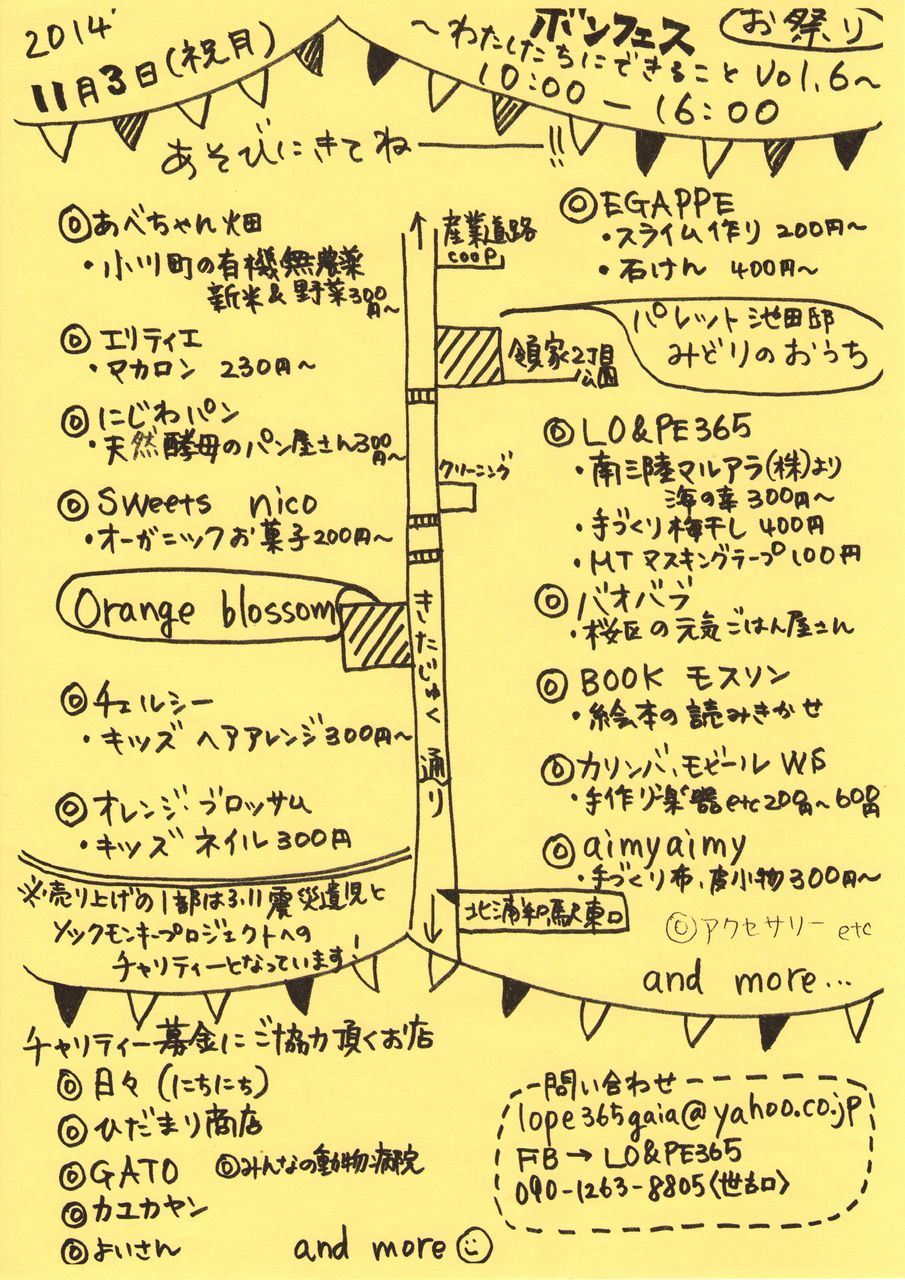 2014'
11月3日(祝月)
ボンフェス
お祭り
〜わたしたちにできること Vol.6〜
10:00 — 16:00
あそびにきてね——!!
◎あべちゃん畑
・小川町の有機無農薬
新米&野菜300円〜
◎エリティエ
・マカロン 230円〜
◎にじわパン
・天然酵母のパン屋さん300円〜
◎Sweets nico
・オーガニックお菓子200円〜
Orange blossom
◎チェルシー
・キッズ ヘアアレンジ300円〜
◎オレンジ・ブロッサム
・キッズ ネイル300円
※売り上げの1部は3.11震災遺児と
ソックモンキープロジェクトへの
チャリティーとなっています!
↑
産業道路
coop
領家2丁目
公園
クリーニング
きたじゅく通り
↓
北浦和駅東口
◎EGAPPE
・スライム作り 200円〜
・石けん 400円〜
パレット池田邸
みどりのおうち
◎LO&PE365
・南三陸マルアラ(株)より
海の幸 300円〜
・手づくり梅干し 400円
・MTマスキングテープ100円
◎バオバブ
・桜区の元気ごはん屋さん
◎BOOK モスソン
・絵本の読みきかせ
◎カリンバ、モビール WS
・手作り楽器etc200円〜600円
◎aimyaimy
・手づくり布、皮小物300円〜
◎アクセサリー etc
and more...
チャリティー募金にご協力頂くお店
◎日々(にちにち)
◎ひだまり商店
◎GATO ◎みんなの動物病院
◎カユカヤン
◎よいさん
and more
問い合わせ
lope365gaia@yahoo.co.jp
FB→LO&PE365
090-1263-8805〈世古口〉